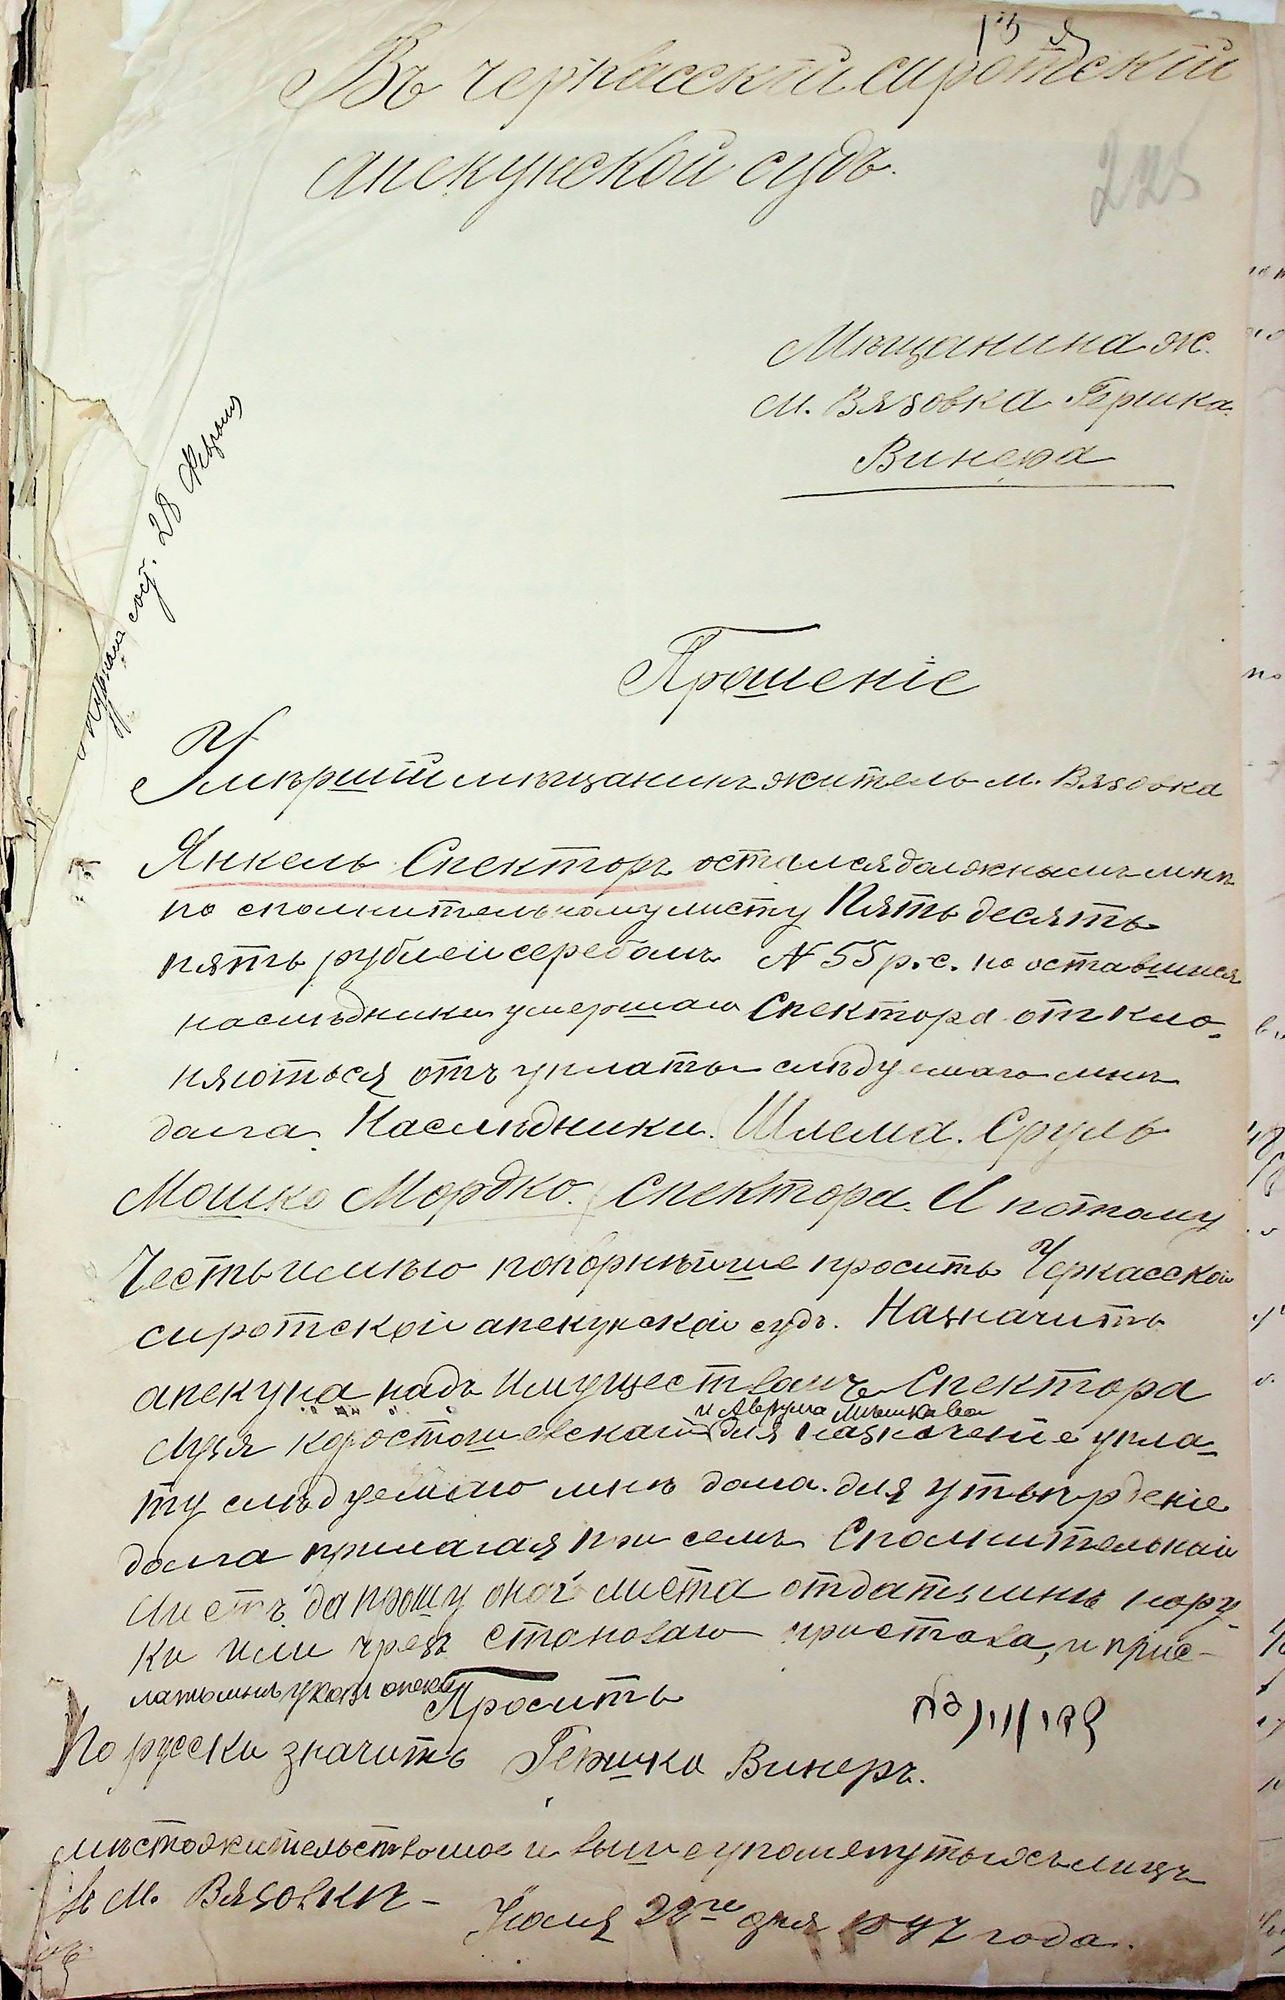 Въ черкасскій сиротскій
апекунской судъ.
225
Мѣщанина ж.
м. Вязовка Гершка
Винера
28 Февраля
Прошеніе
Умѣршій мѣщанинъ житель м. Вязовка
Янкель Спекторъ остался должнымъ мнѣ
по сполнительному листу Пять десять
пять рублей серебомъ N 55 р. с. но оставшися
наслѣдники умершаго Спектора отклю-
няються отъ уплаты слѣдуемаго мнѣ
долга Наслѣдники. Шлема. Сруль
Мошко Мордко. Спектора. И потому
Честь имѣю покорнѣйше просить Черкасской
сиротской апекунской судъ. Назначить
апекуна надъ имуществомъ Спектора
и Аврума
Коростошевскаго для назначеніе упла-
ту слѣдуемаго мнѣ долга. для утьвѣрденіе
долга прилагая при семъ Сполнительной
Листъ да прошу оного листа отдать мнѣ нару-
ки или чрезъ становаго пристава, и прис-
лать мнѣ указъ опеки
Просить
По русски значить Гершко Винеръ.
мѣстожительство мое и вышеупомянутыхъ лицъ
въ м. Вязовкѣ -
Июля 22го дня 1897 года.